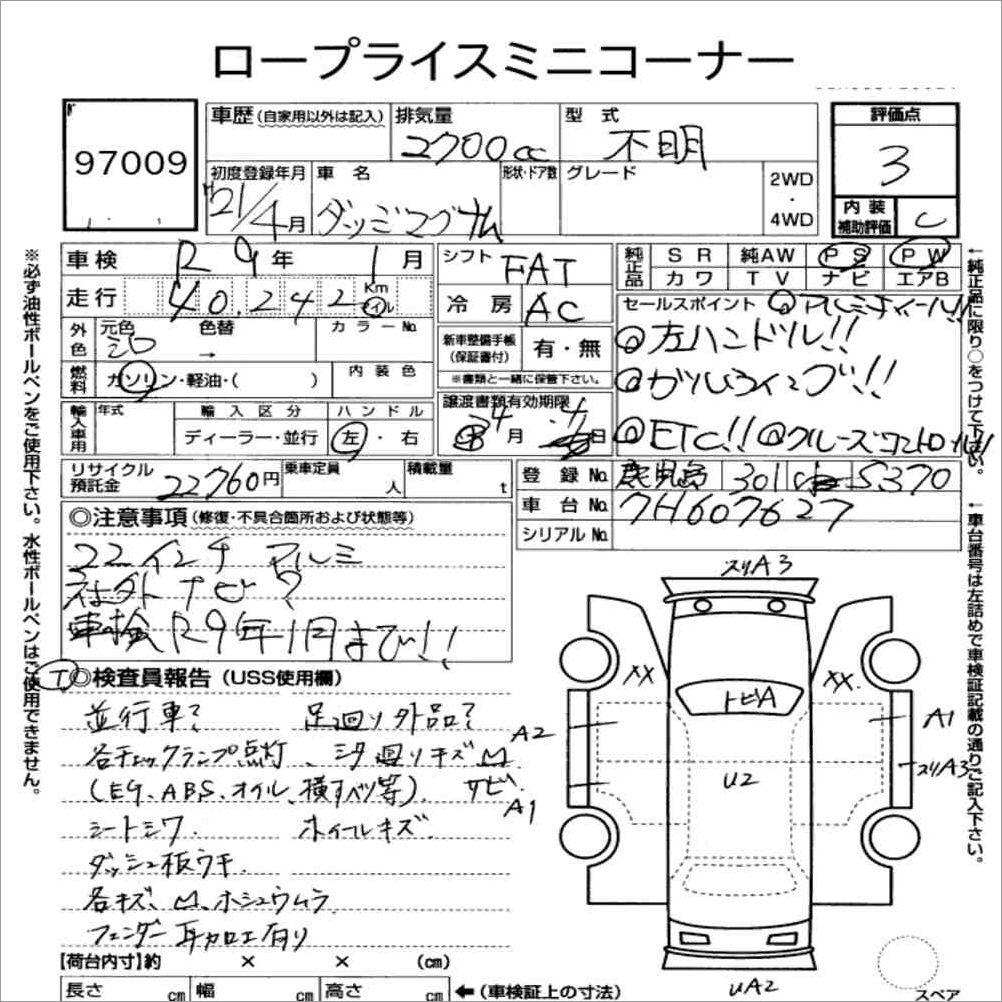 ロープライスミニコーナー
97009
車歴 (自家用以外は記入)
排気量
2700cc
型式
不明
評価点
3
初度登録年月
'21/4月
車名
ダッジマグナム
形状・ドア数
グレード
2WD
・
4WD
内装
補助評価
C
車検
R 9年 1月
走行
40,242
Km
マイル
外色
元色
色替
→
カラーNo.
燃料
ガソリン・軽油・( )
内装色
輸入車用
年式
輸入区分
ディーラー・並行
ハンドル
左・右
シフト
FAT
冷房
AC
新車整備手帳
(保証書付)
有・無
※書類と一緒に保管下さい。
譲渡書類有効期限
月 日
純正品
SR 純AW PS PW
カワ TV ナビ エアB
セールスポイント
◎アルミホイール!!
◎左ハンドル!!
◎ガルウイング!!
◎ETC!! ◎クルーズコントロール!!
リサイクル
預託金
22760円
乗車定員
人
積載量
t
登録No.
鹿児島 301 S370
車台No.
7H607627
シリアルNo.
◎注意事項 (修復・不具合箇所および状態等)
22インチ アルミ
社外ナビ?
車検 R9年1月まで!!
◎検査員報告 (USS使用欄)
並行車? 足廻り外品?
各チェックランプ点灯 ミダ廻りキズ
(EG、ABS、オイル、横すべり等). サビ
シートシワ. ホイールキズ.
ダッシュ板ウキ.
各キズ、凹、ホシュウムラ
フェンダー耳加工有り
【荷台内寸】約 × × (cm)
長さ cm 幅 cm 高さ cm
←(車検証上の寸法)
スリA3
XX
XX
トビA
A2
A1
U2
A1
スリA3
UA2
スペア
※必ず油性ボールペンをご使用下さい。水性ボールペンはご使用できません。
←純正品に限り○をつけて下さい。
←車台番号は左詰めで車検証記載の通りご記入下さい。